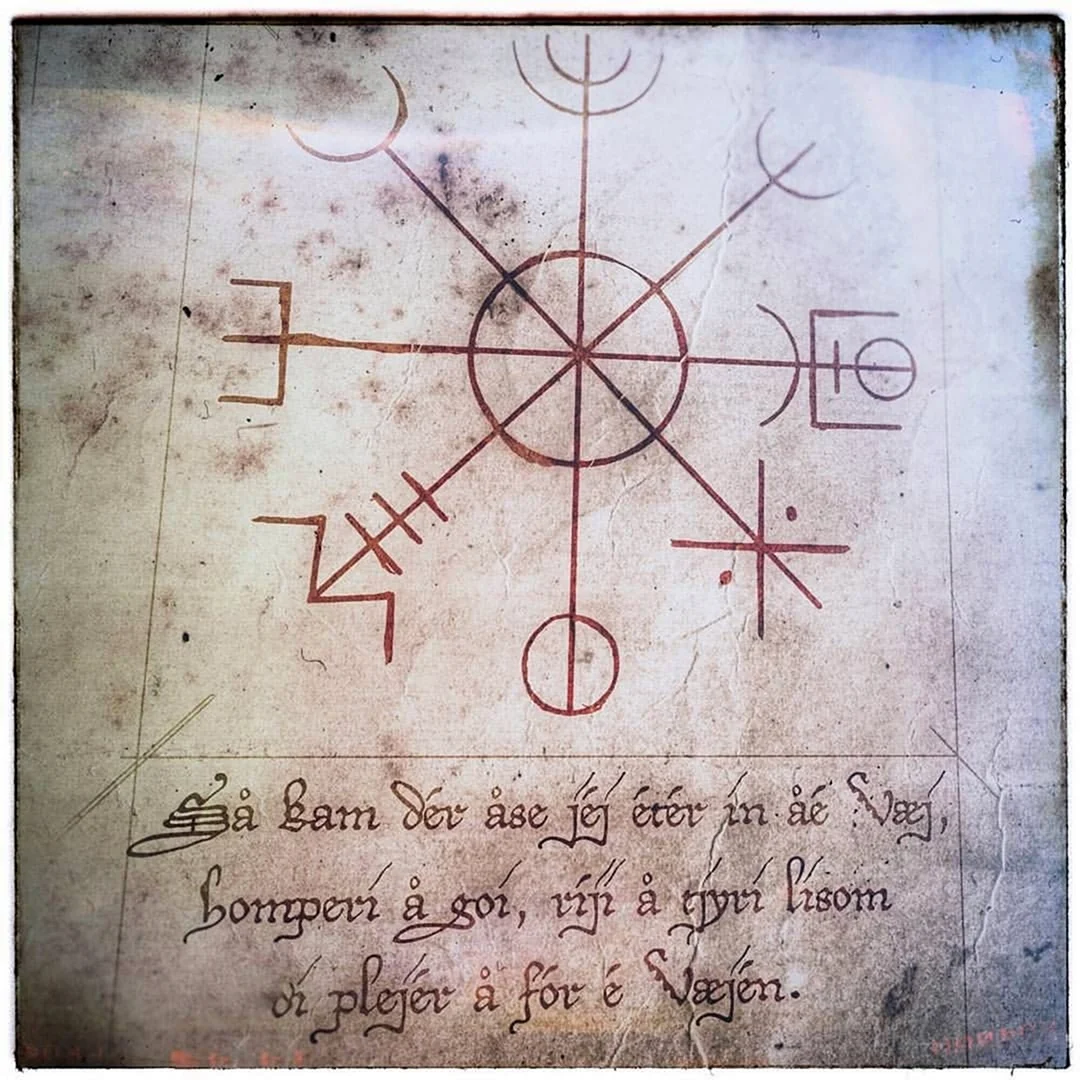 Så kam dér åse jéj étér ín åé Væj,
homperí å goí, ríjí å tjyrí lísom
dí plejér å fór é Væjén.